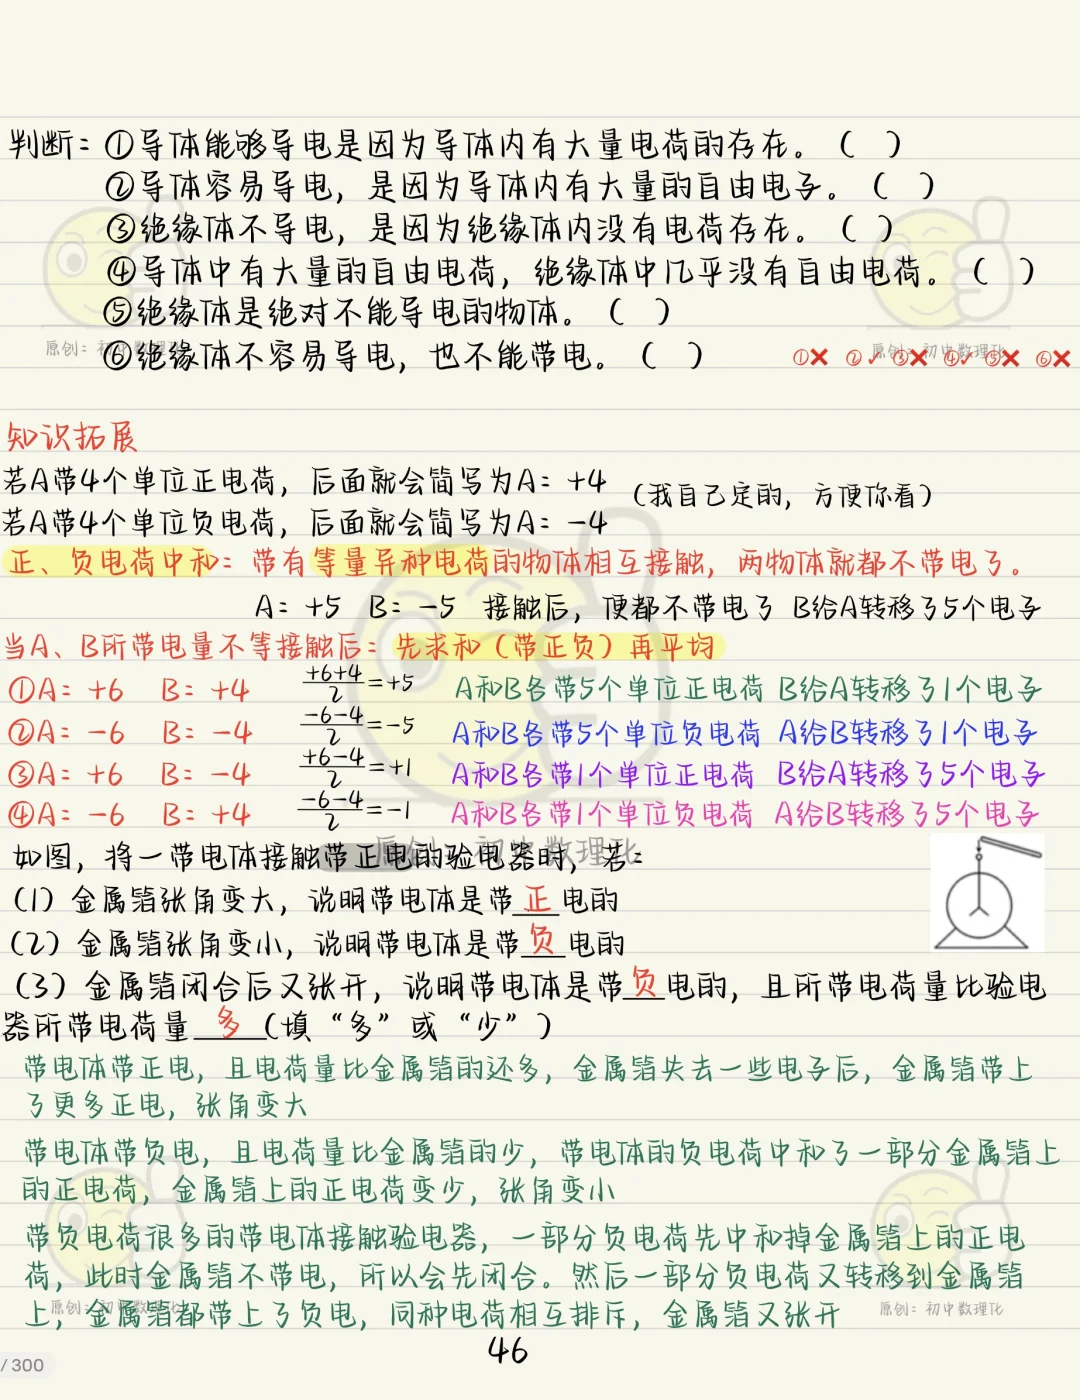 判断：①导体能够导电是因为导体内有大量电荷的存在。（ ）
②导体容易导电，是因为导体内有大量的自由电子。（ ）
③绝缘体不导电，是因为绝缘体内没有电荷存在。（ ）
④导体中有大量的自由电荷，绝缘体中几乎没有自由电荷。（ ）
⑤绝缘体是绝对不能导电的物体。（ ）
原创：初中数理化
⑥绝缘体不容易导电，也不能带电。（ ）
原创：初中数理化
①❌ ②✓ ③❌ ④✓ ⑤❌ ⑥❌
知识拓展
若A带4个单位正电荷，后面就会简写为A：+4
（我自己定的，方便你看）
若A带4个单位负电荷，后面就会简写为A：-4
正、负电荷中和：带有等量异种电荷的物体相互接触，两物体就都不带电了。
A：+5 B：-5 接触后，便都不带电了 B给A转移了5个电子
当A、B所带电量不等接触后：先求和（带正负）再平均
①A：+6 B：+4 (+6+4)/2=+5 A和B各带5个单位正电荷 B给A转移了1个电子
②A：-6 B：-4 (-6-4)/2=-5 A和B各带5个单位负电荷 A给B转移了1个电子
③A：+6 B：-4 (+6-4)/2=+1 A和B各带1个单位正电荷 B给A转移了5个电子
④A：-6 B：+4 (-6-4)/2=-1 A和B各带1个单位负电荷 A给B转移了5个电子
原创：初中数理化
如图，将一带电体接触带正电的验电器时，若：
(1）金属箔张角变大，说明带电体是带正电的
(2）金属箔张角变小，说明带电体是带负电的
(3）金属箔闭合后又张开，说明带电体是带负电的，且所带电荷量比验电
器所带电荷量多（填“多”或“少”）
带电体带正电，且电荷量比金属箔的还多，金属箔失去一些电子后，金属箔带上
了更多正电，张角变大
带电体带负电，且电荷量比金属箔的少，带电体的负电荷中和了一部分金属箔上
的正电荷，金属箔上的正电荷变少，张角变小
带负电荷很多的带电体接触验电器，一部分负电荷先中和掉金属箔上的正电
荷，此时金属箔不带电，所以会先闭合。然后一部分负电荷又转移到金属箔
上，金属箔都带上了负电，同种电荷相互排斥，金属箔又张开
原创：初中数理化
原创：初中数理化
46
/ 300